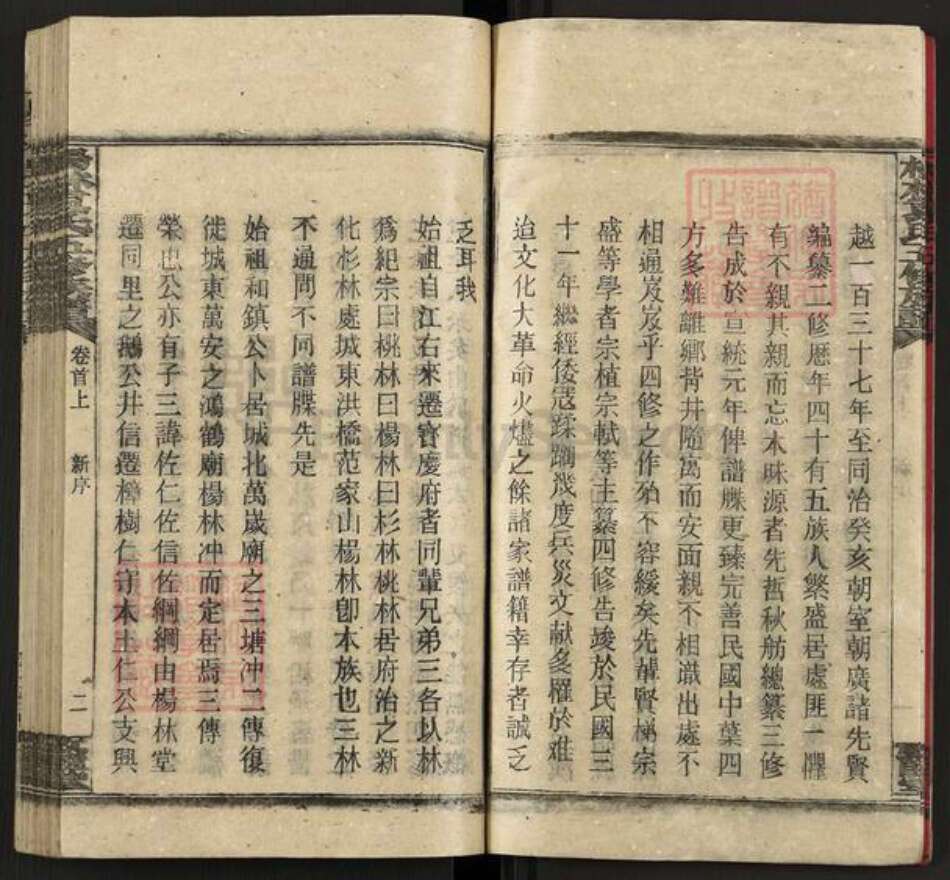 越一百三十七年至同治癸亥朝室朝廣諸先賢
編纂二修歷年四十有五族人繁盛居處匪一懼
有不親其親而忘本昧源者先哲秋舫總纂三修
告成於宣統元年俾譜牒更臻完善民國中葉四
方多難離鄉背井隨寓而安面親不相識出處不
相通岌岌乎四修之作殆不容緩矣先輩賢梯宗
盛等學者宗植宗軾等主纂四修告竣於民國三
十一年繼經倭寇蹂躪幾度兵災文献多罹於难
迨文化大革命火爐之餘諸家譜籍幸存者誠乏
乏耳我
始祖自江右來遷寶慶府者同輩兄弟三各以林
爲紀宗曰桃林曰楊林曰杉林桃林居府治之新
化杉林處城東洪橋范家山楊林卽本族也三林
不通問不同譜牒先是
始祖和鎮公卜居城北萬嵗廟之三塘冲二傳復
徙城東萬安之鴻鶴廟楊林冲而定居焉三傳
榮也公亦有子三諱佐仁佐信佐綱綱由楊林堂
遷同里之鵝公井信遷樟樹仁守本土仁公支興
卷首上
新序
二